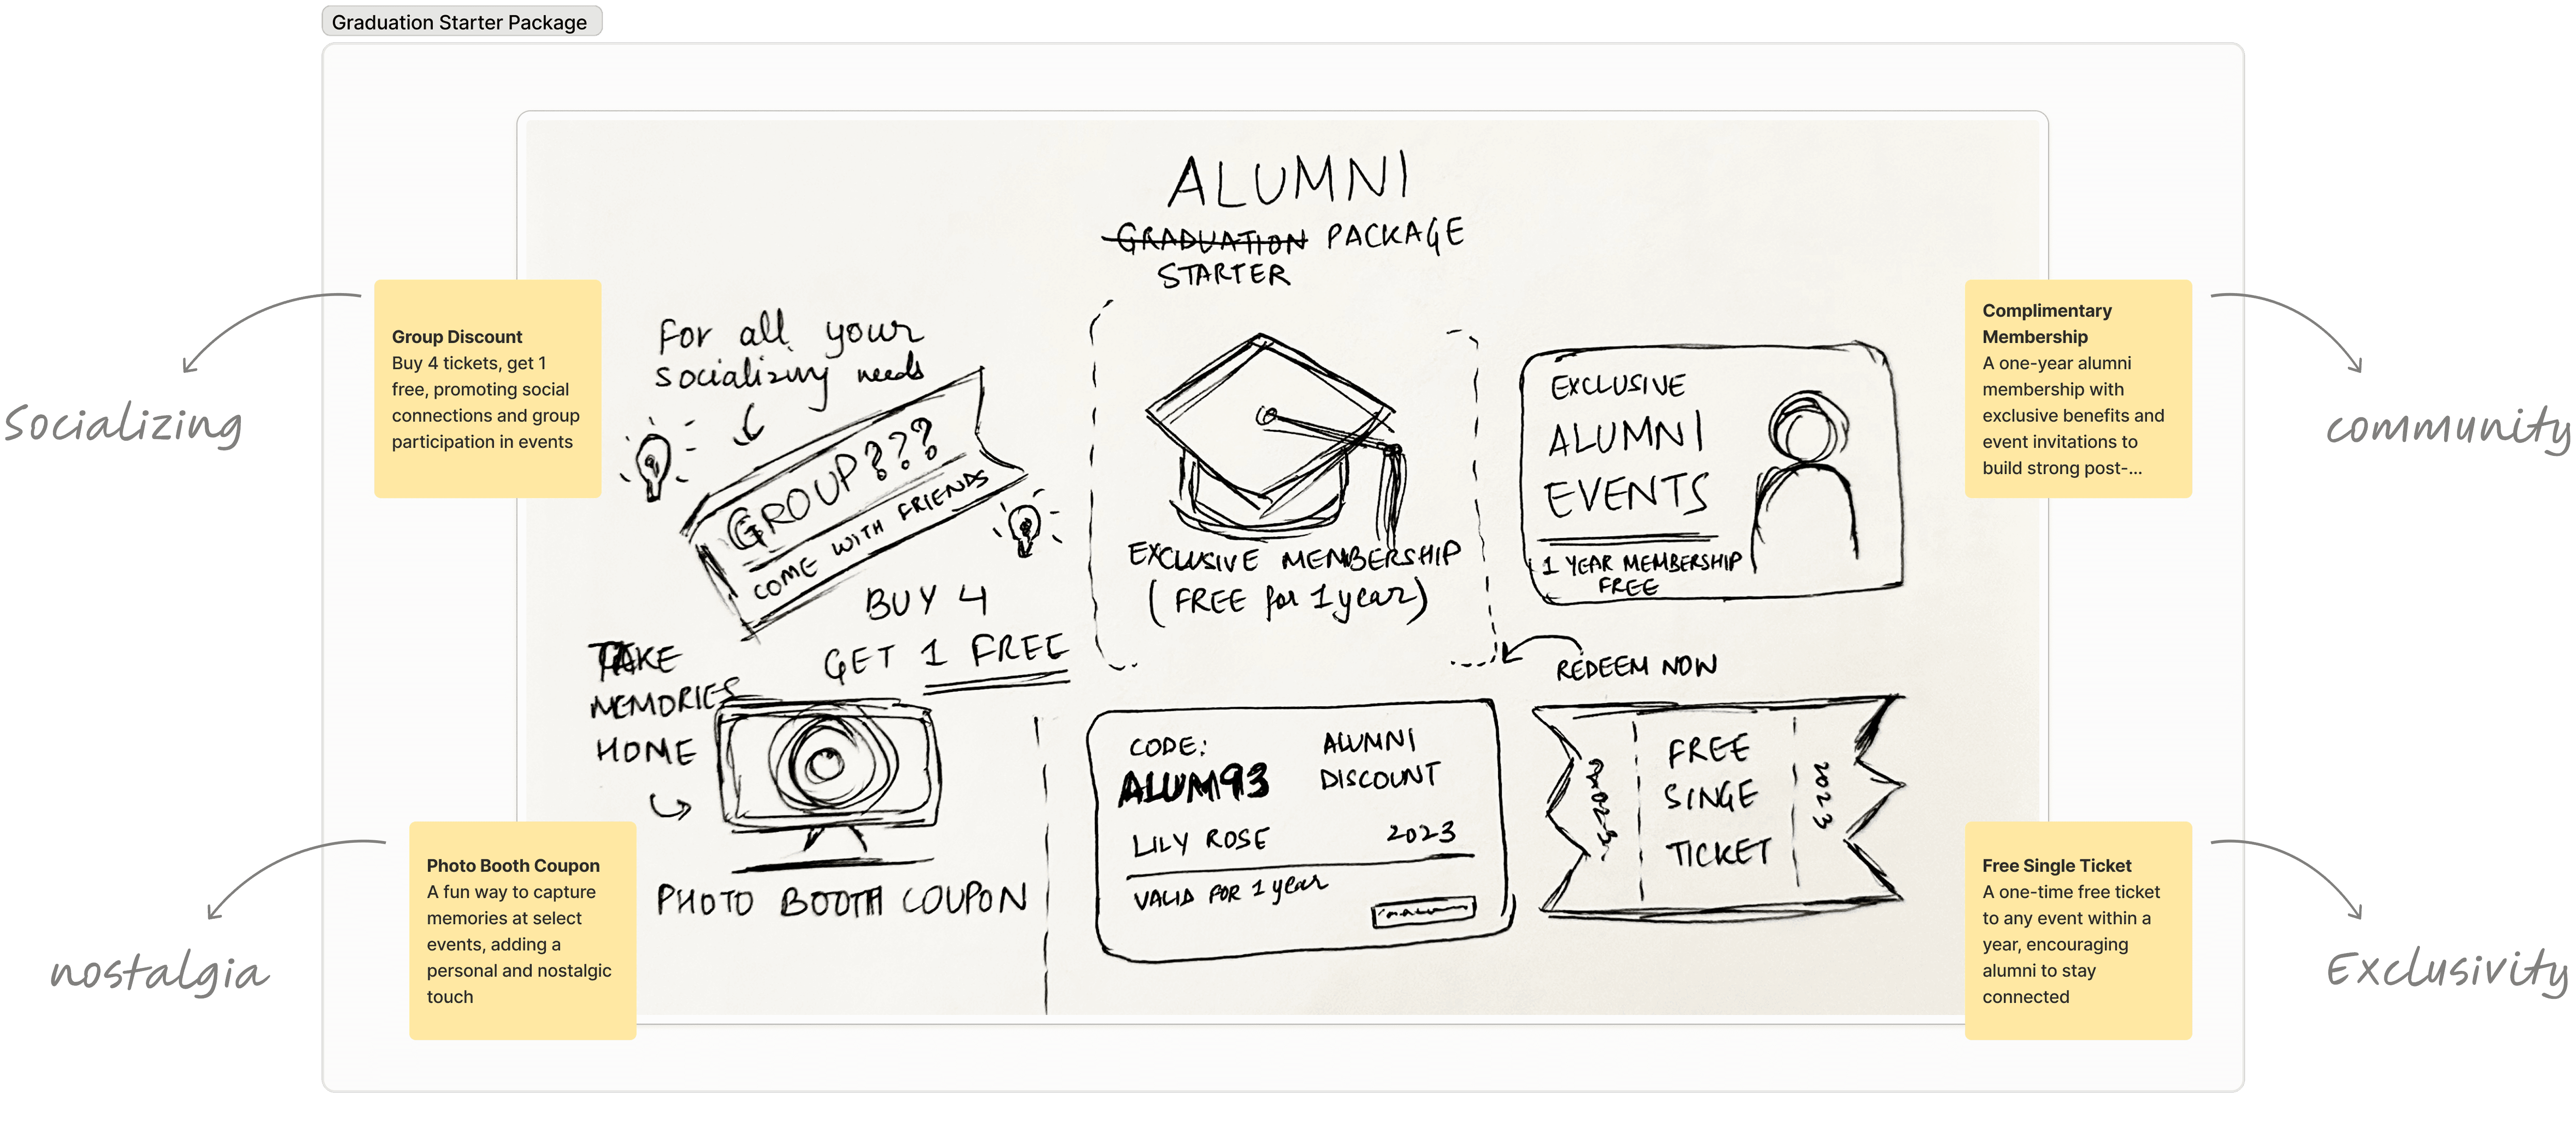 Graduation Starter Package
ALUMNI
GRADUATION PACKAGE
STARTER
Socializing
Group Discount
Buy 4 tickets, get 1
free, promoting social
connections and group
participation in events
For all your
socializing needs
GROUP???
COME WITH FRIENDS
BUY 4
GET 1 FREE
EXCLUSIVE MEMBERSHIP
(FREE for 1 year)
EXCLUSIVE
ALUMNI
EVENTS
1 YEAR MEMBERSHIP
FREE
Complimentary
Membership
A one-year alumni
membership with
exclusive benefits and
event invitations to
build strong post-...
community
REDEEM NOW
TAKE
MEMORIES
HOME
PHOTO BOOTH COUPON
nostalgia
Photo Booth Coupon
A fun way to capture
memories at select
events, adding a
personal and nostalgic
touch
CODE:
ALUM93
ALUMNI
DISCOUNT
LILY ROSE
2023
VALID FOR 1 year
FREE
SINGE
TICKET
2023
Free Single Ticket
A one-time free ticket
to any event within a
year, encouraging
alumni to stay
connected
Exclusivity